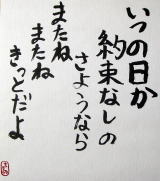 いつの日か
約束なしの
さようなら
またね
またね
きっとだよ